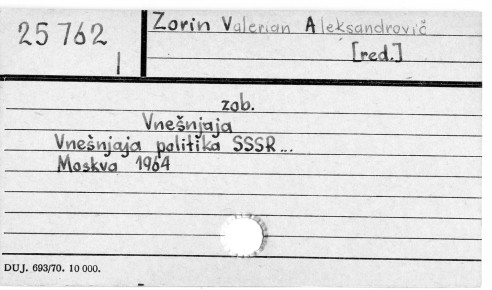 25 762
I
Zorin Valerian Aleksandrovič
[red.]
zob.
Vnešnjaja
Vnešnjaja politika SSSR...
Moskva 1964
DUJ. 693/70. 10 000.